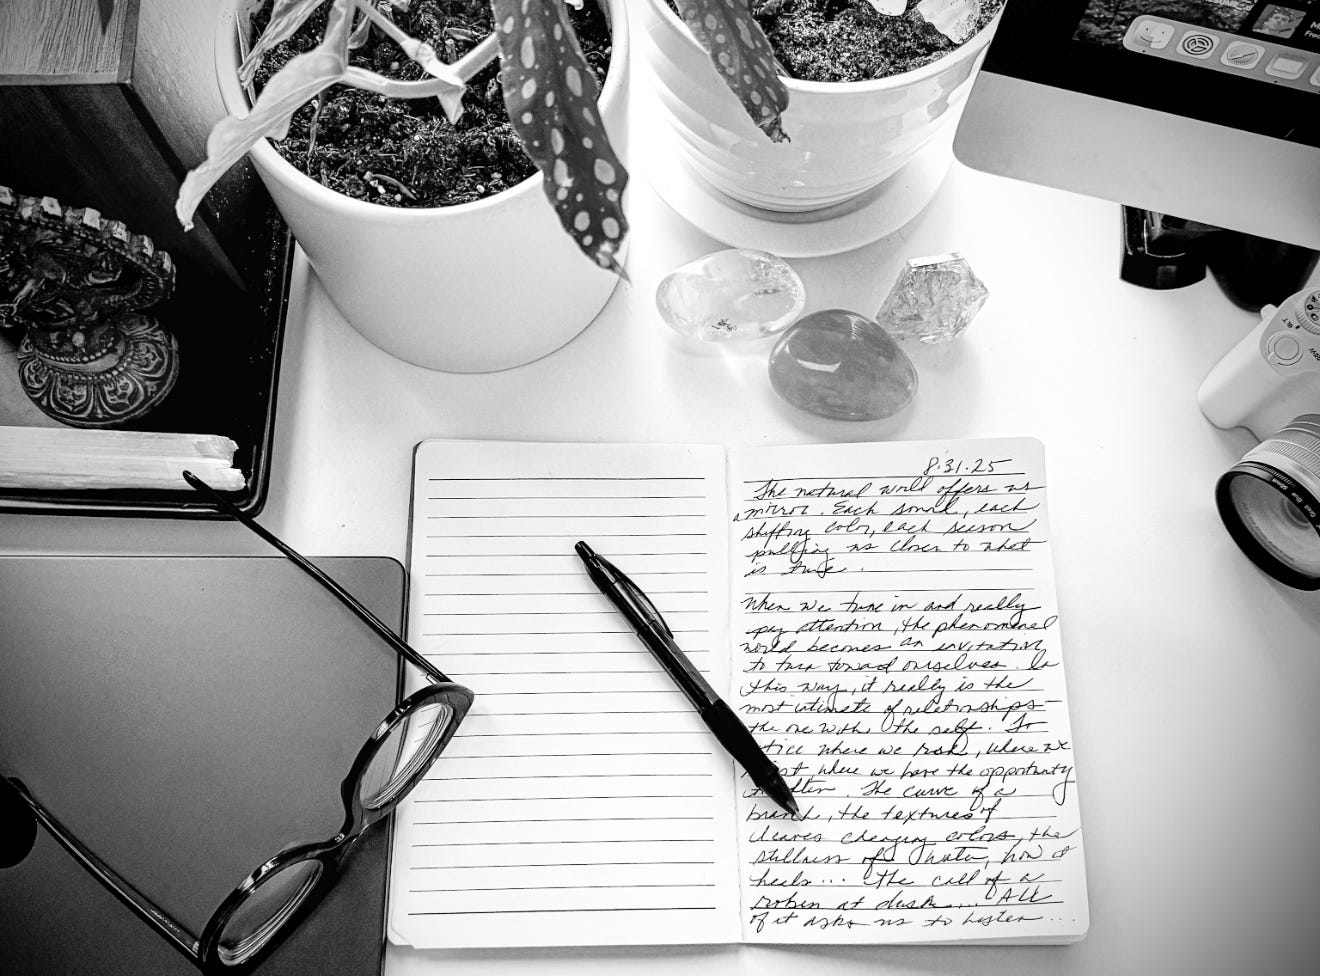 8.31.25
The natural world offers us
a mirror. Each sound, each
shifting color, each season
pulling us closer to what
is true.
When we tune in and really
pay attention, the phenomenal
world becomes an invitation
to turn toward ourselves. In
this way, it really is the
most intimate of relationships—
the one with the self. To
where we rush, where we
where we have the opportunity
The curve of a
branch, the textures of
leaves changing colors, the
stillness of water, how it
heals... the call of a
robin at dusk... All
of it asks us to listen...